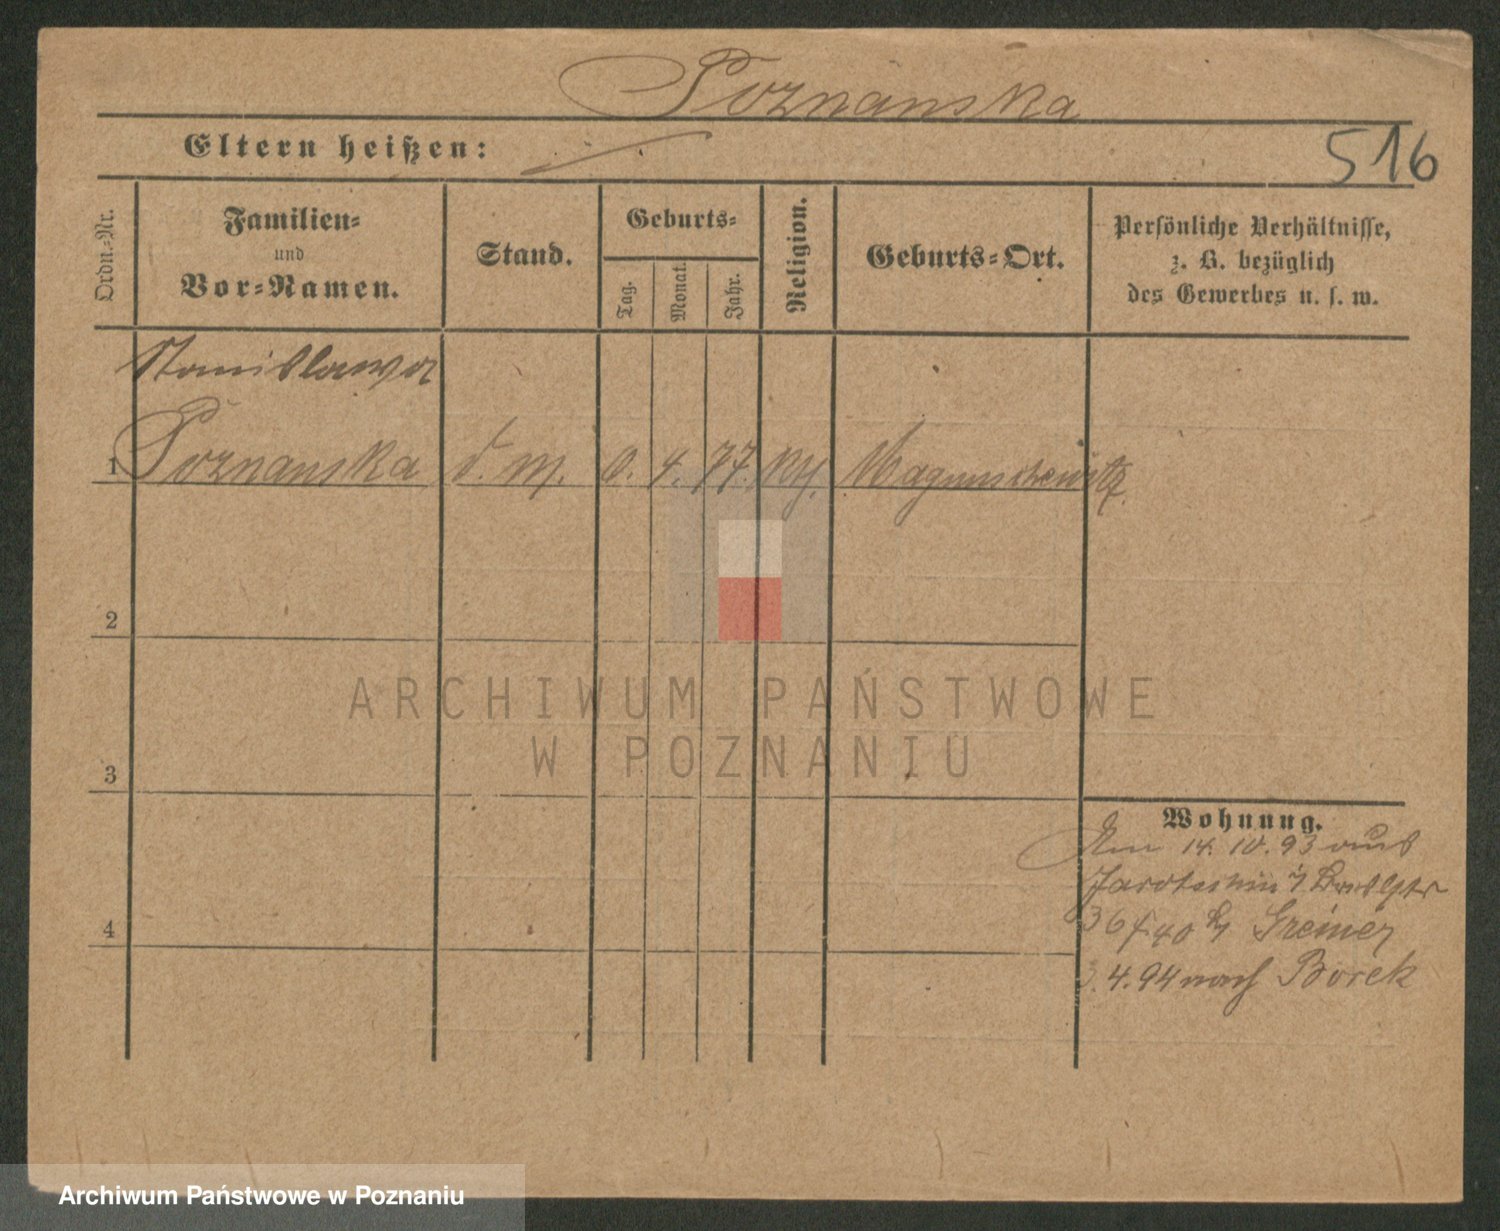 Poznańska
Eltern heißen:
516
Ordn.-Nr.
Familien-
und
Vor-Namen.
Stand.
Geburts-
Tag.
Monat.
Jahr.
Religion.
Geburts-Ort.
Persönliche Verhältnisse,
z. B. bezüglich
des Gewerbes u. s. w.
Stanislawa
1 Poznanska d. m. 0. 4. 77. Magnuschewitz
2
3
4
Wohnung.
Am 14. 10. 93 aus
Jarotschin
36 f 40 Greiner
3.4.94 nach Borek
ARCHIWUM PAŃSTWOWE
W POZNANIU
Archiwum Państwowe w Poznaniu